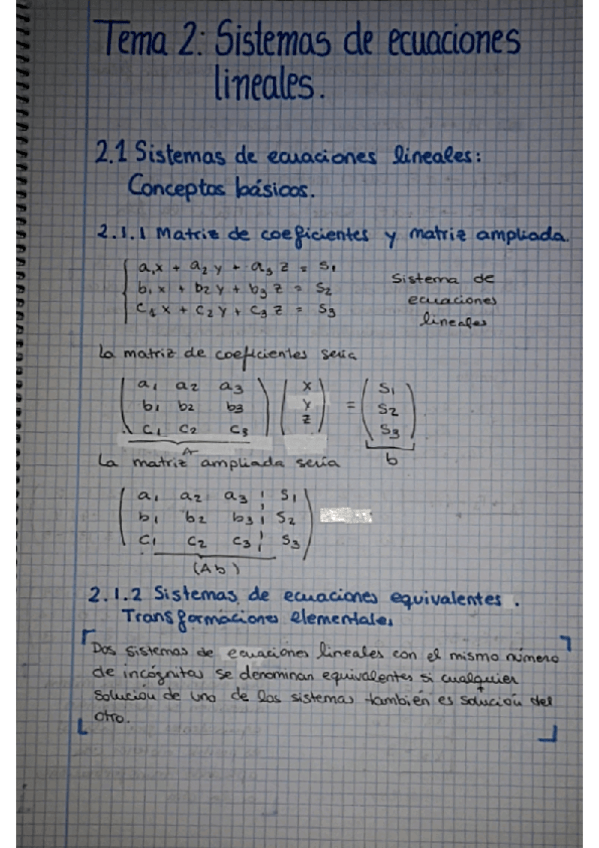 Tema 2: Sistemas de ecuaciones
lineales.
2.1 Sistemas de ecuaciones lineales:
Conceptos básicos.
2.1.1 Matriz de coeficientes y matriz ampliada.
a₁x + a₂y + a₃z = S₁
b₁x + b₂y + b₃z = S₂
C₁x + C₂y + C₃z = S₃
Sistema de
ecuaciones
lineales
La matriz de coeficientes seria
a₁ a₂ a₃ x S₁
b₁ b₂ b₃ y = S₂
C₁ C₂ C₃ z S₃
A b
La matriz ampliada sería
a₁ a₂ a₃ ¦ S₁
b₁ b₂ b₃ ¦ S₂
C₁ C₂ C₃ ¦ S₃
(Ab)
2.1.2 Sistemas de ecuaciones equivalentes.
Transformaciones elementales
Dos sistemas de ecuaciones lineales con el mismo número
de incógnitas se denominan equivalentes si cualquier
solución de uno de los sistemas también es solución del
otro.